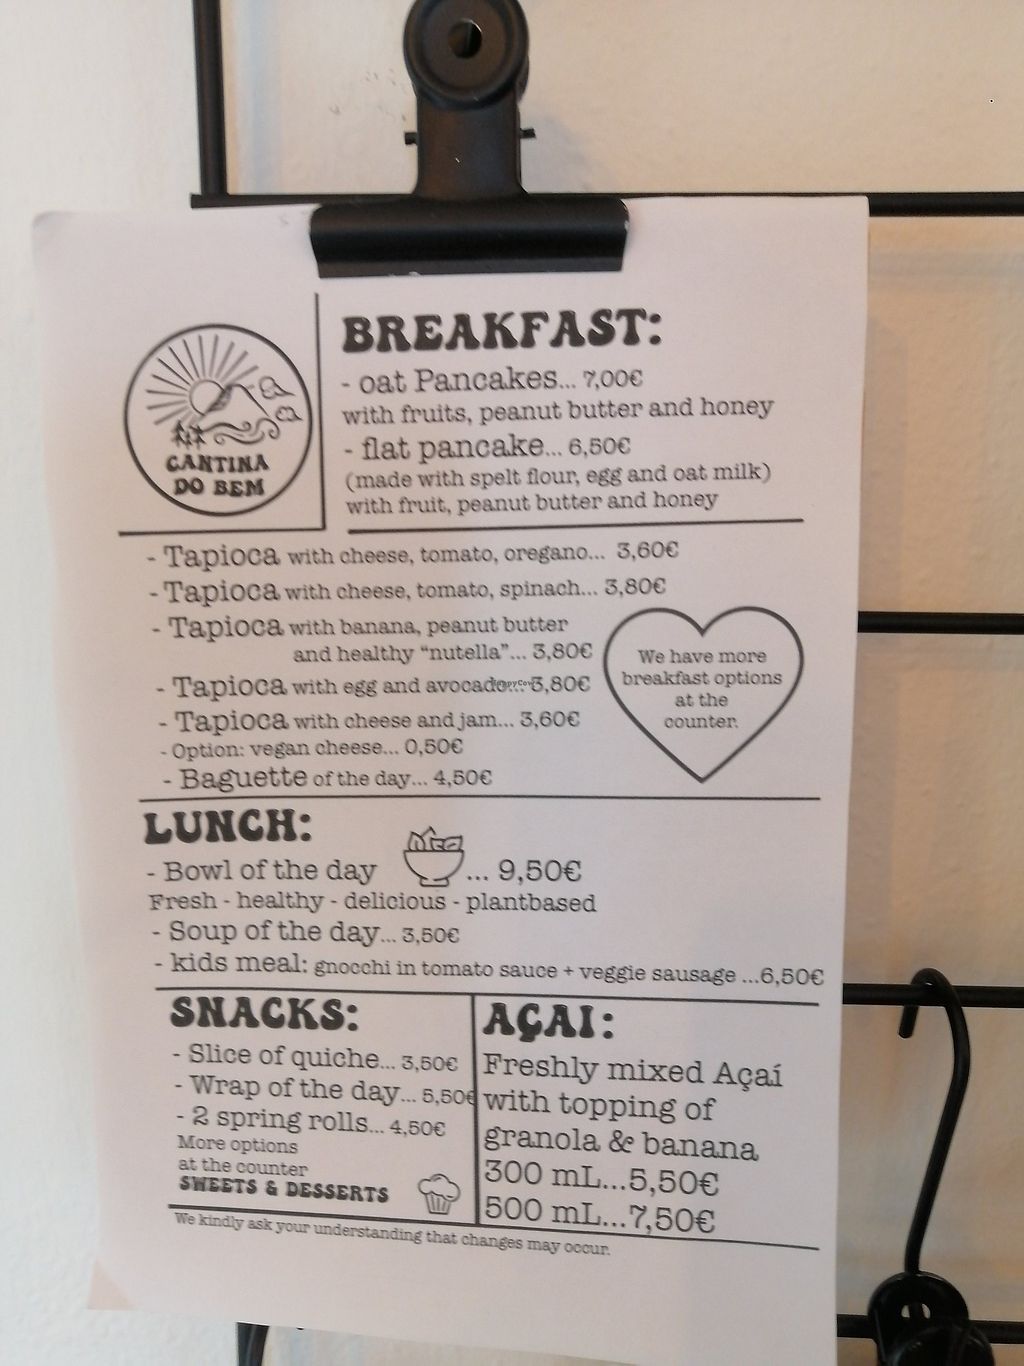 CANTINA
DO BEM
BREAKFAST:
- oat Pancakes... 7,00€
with fruits, peanut butter and honey
- flat pancake... 6,50€
(made with spelt flour, egg and oat milk)
with fruit, peanut butter and honey
- Tapioca with cheese, tomato, oregano... 3,60€
- Tapioca with cheese, tomato, spinach... 3,80€
- Tapioca with banana, peanut butter
and healthy “nutella”... 3,80€
- Tapioca with egg and avocado... 3,80€
- Tapioca with cheese and jam... 3,60€
- Option: vegan cheese... 0,50€
- Baguette of the day... 4,50€
We have more
breakfast options
at the
counter.
LUNCH:
- Bowl of the day ... 9,50€
Fresh - healthy - delicious - plantbased
- Soup of the day... 3,50€
- kids meal: gnocchi in tomato sauce + veggie sausage ...6,50€
SNACKS:
- Slice of quiche... 3,50€
- Wrap of the day... 5,50€
- 2 spring rolls... 4,50€
More options
at the counter
SWEETS & DESSERTS
AÇAI:
Freshly mixed Açaí
with topping of
granola & banana
300 mL...5,50€
500 mL...7,50€
We kindly ask your understanding that changes may occur.